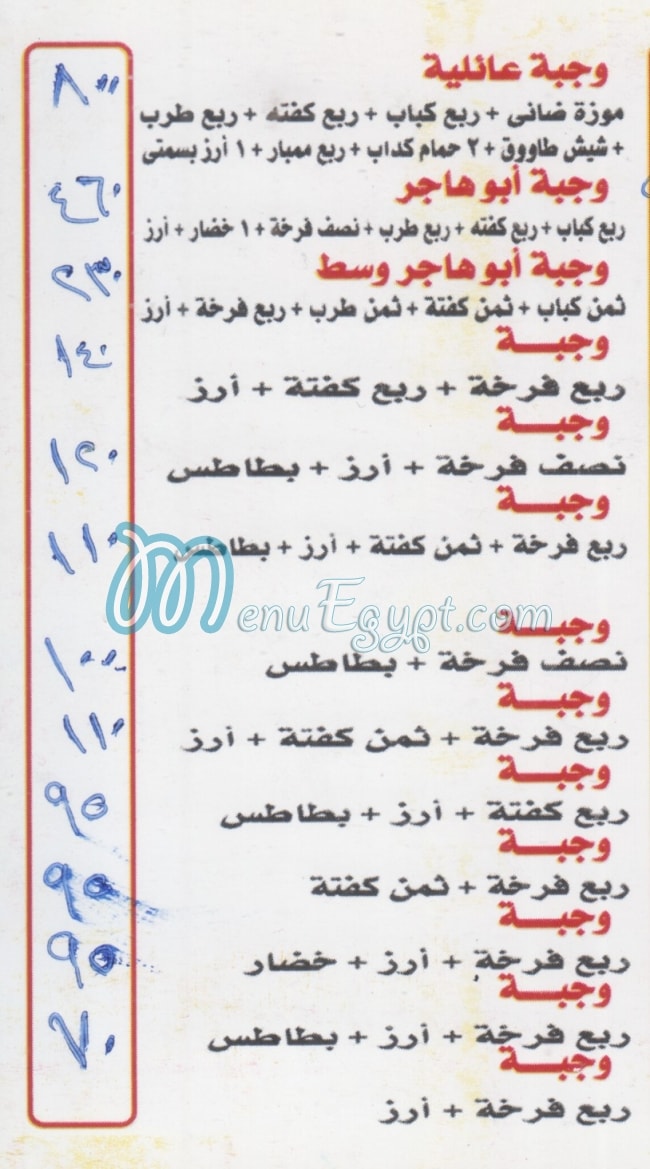 وجبة عائلية
٨٠٠
موزة ضانى + ربع كباب + ربع كفته + ربع طرب
+ شيش طاووق + ٢ حمام كداب + ربع ممبار + ١ أرز بسمتى
وجبة أبو هاجر
٤٦٠
ربع كباب + ربع كفته + ربع طرب + نصف فرخة + ١ خضار + أرز
وجبة أبو هاجر وسط
٢٣٠
ثمن كباب + ثمن كفتة + ثمن طرب + ربع فرخة + أرز
وجبـــة
١٤٠
ربع فرخة + ربع كفتة + أرز
وجبـــة
١٢٠
نصف فرخة + أرز + بطاطس
وجبـــة
١١٠
ربع فرخة + ثمن كفتة + أرز + بطاطس
MenuEgypt.com
وجبـــة
١٠٠
نصف فرخة + بطاطس
وجبـــة
١١٠
ربع فرخة + ثمن كفتة + أرز
وجبـــة
٩٥
ربع كفتة + أرز + بطاطس
وجبـــة
٩٥
ربع فرخة + ثمن كفتة
وجبـــة
٩٥
ربع فرخة + أرز + خضار
وجبـــة
٧٠
ربع فرخة + أرز + بطاطس
وجبـــة
ربع فرخة + أرز